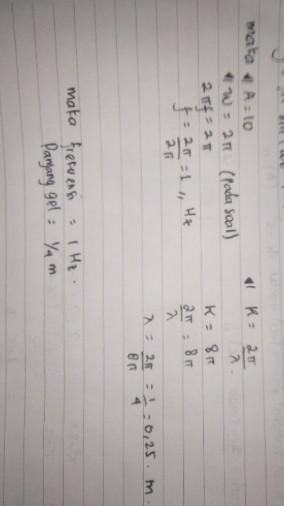 maka ◀ A = 10
◀ W = 2π (pada soal)
2πf = 2π
f = 2π/2π = 1 ,, Hz
◀ K = 2π/λ.
K = 8π
2π/λ = 8π
λ = 2π/8π = 1/4 = 0,25. m.
maka frekuensi = 1 Hz.
Panjang gel = 1/4 m